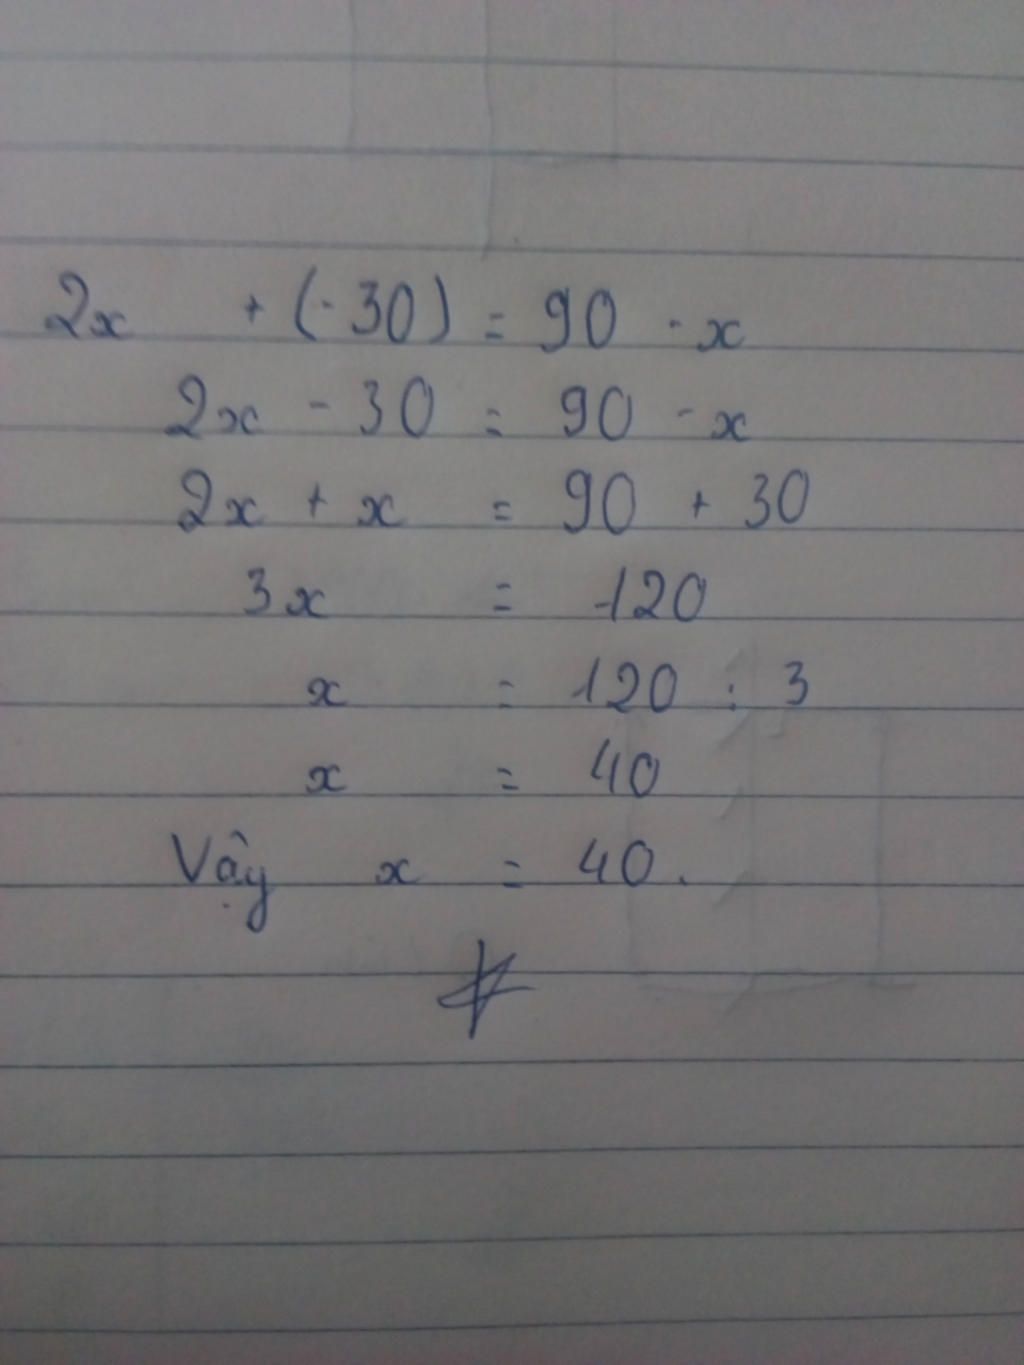 2x + (-30) = 90 - x
2x - 30 = 90 - x
2x + x = 90 + 30
3x = 120
x = 120 : 3
x = 40
Vậy x = 40.